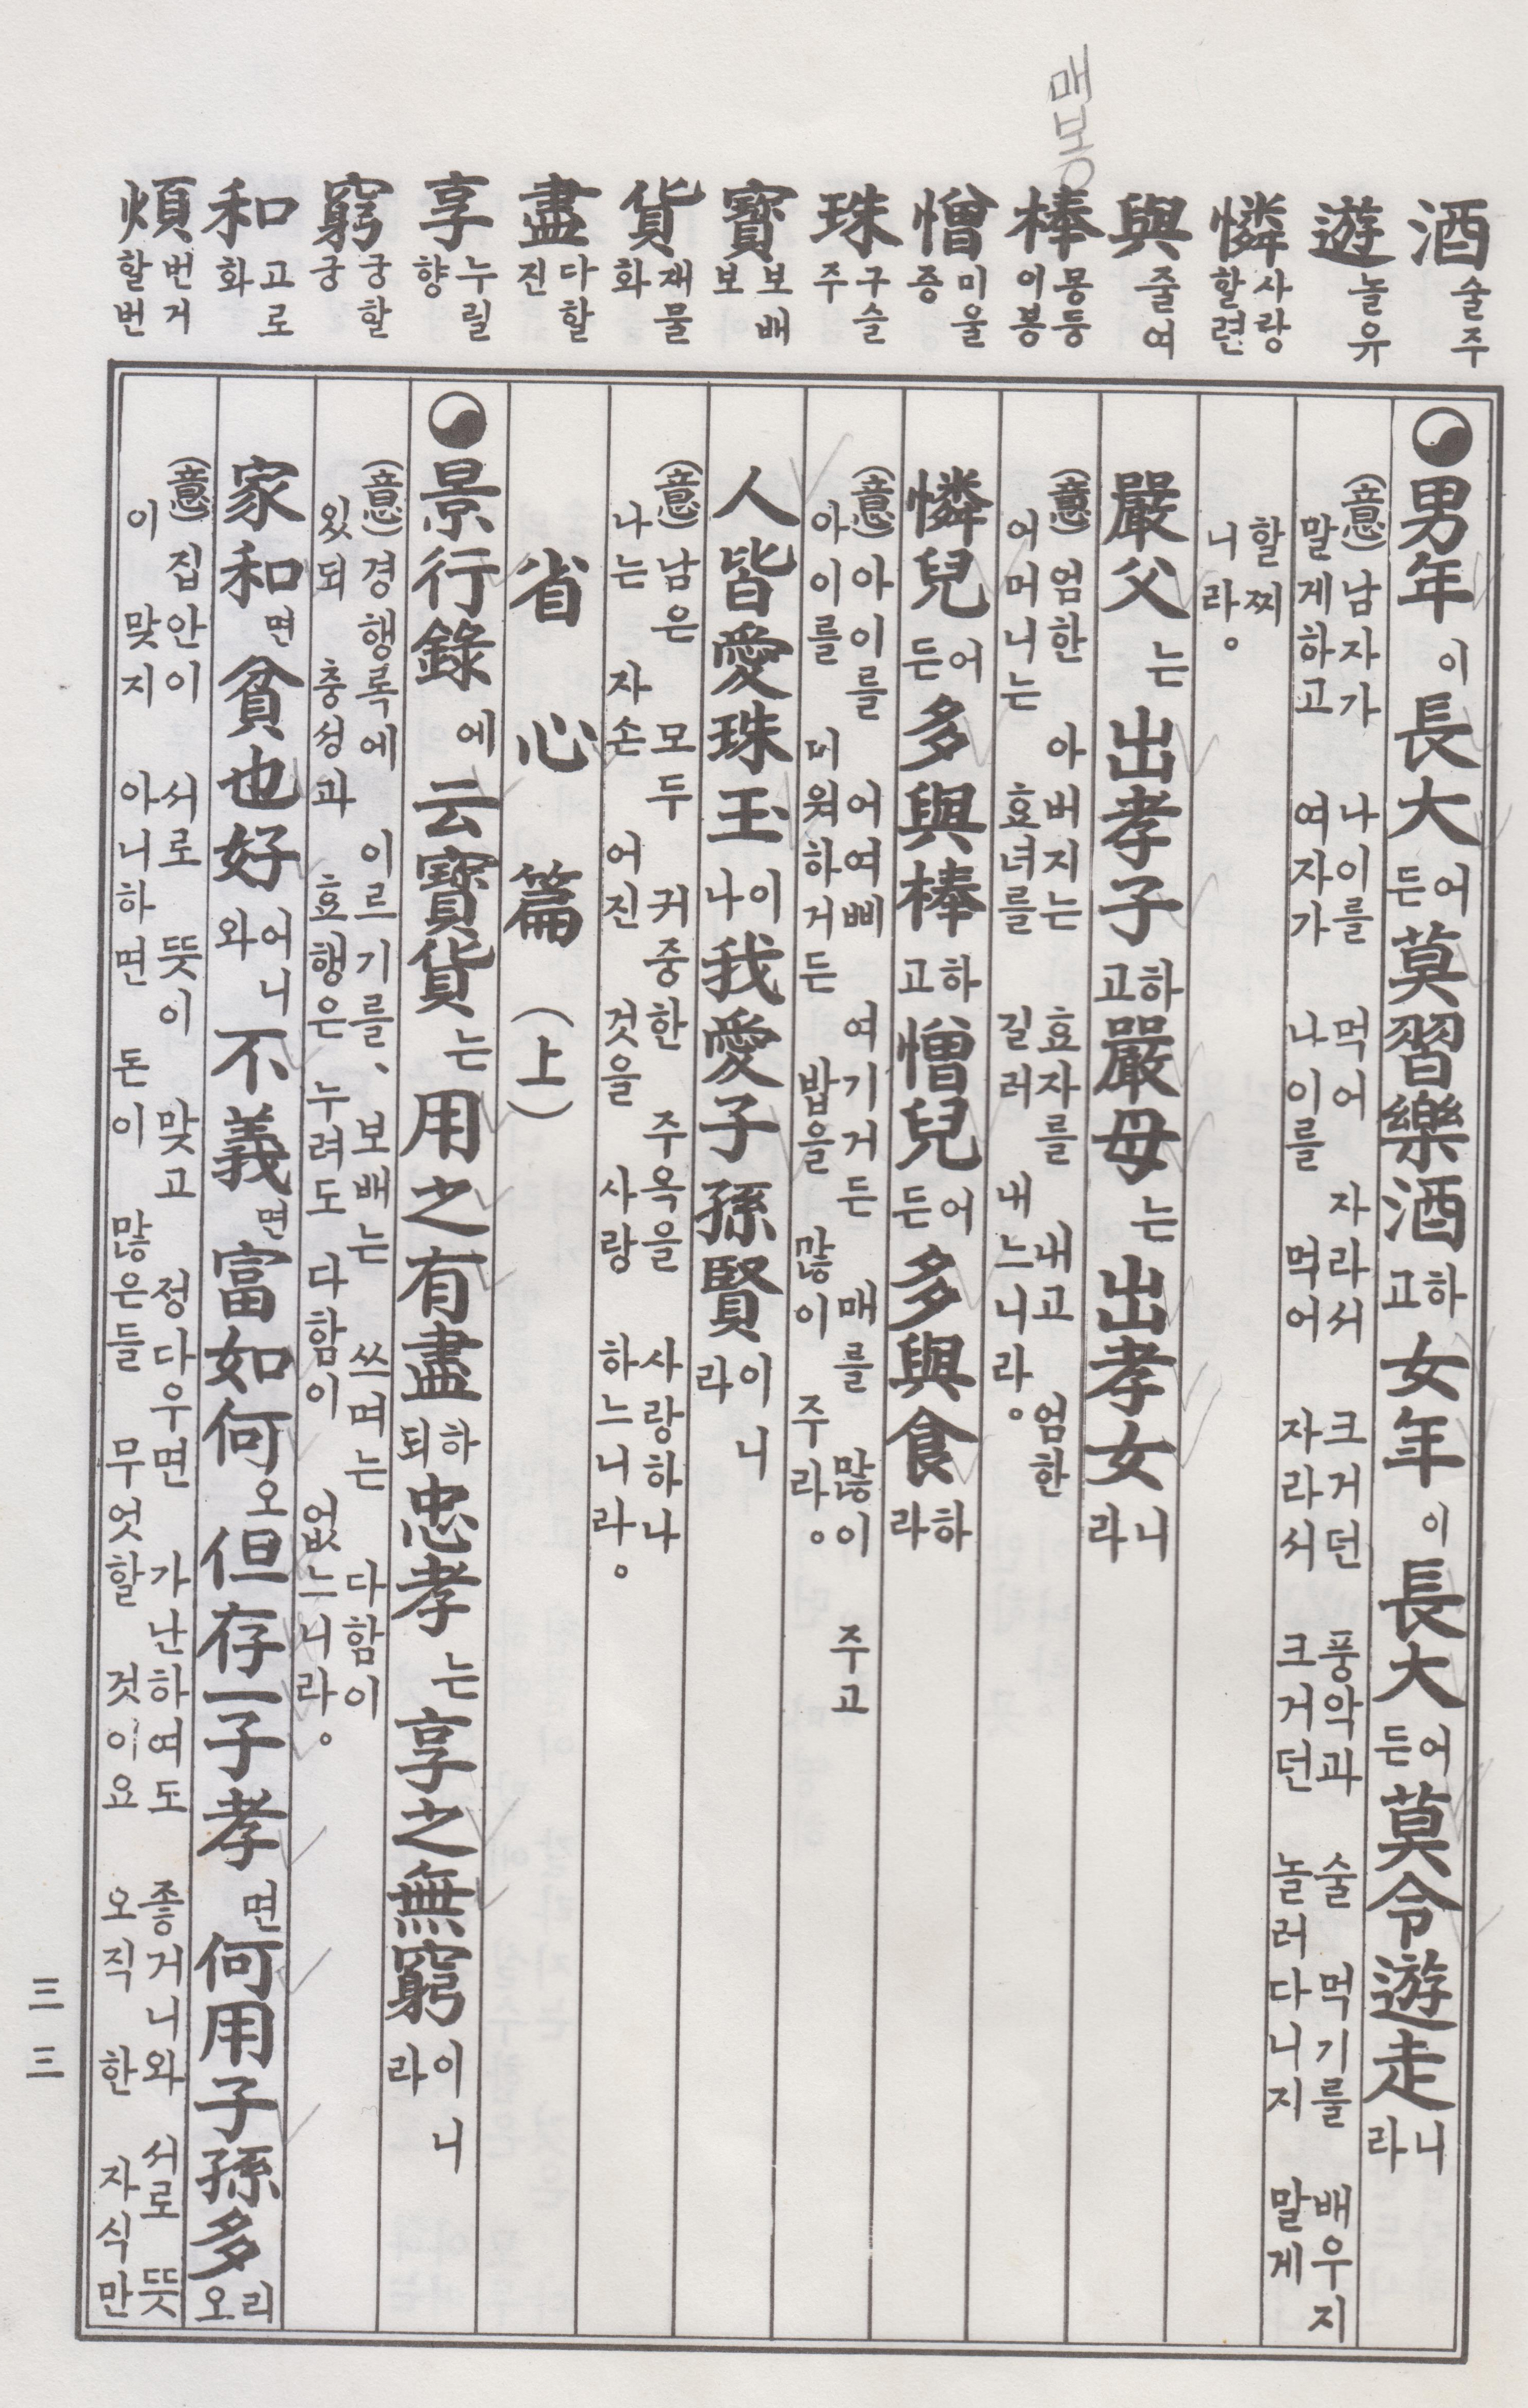 매 몽
酒 술주
遊 놀유
憐 사랑할련
與 줄여
棒 몽둥이봉
憎 미울증
珠 구슬주
寶 보배보
貨 재물화
盡 다할진
享 누릴향
窮 궁할궁
和 고로화
煩 번거할번
男年이 長大어든 莫習樂酒하고 女年이 長大어든 莫令遊走니라
(意) 남자가 나이를 먹어 자라서 크거던 풍악과 술 먹기를 배우지
말게하고 여자가 나이를 먹어 자라서 크거던 놀러다니지 말게
할찌
니라。
嚴父는 出孝子하고 嚴母는 出孝女니라
(意) 엄한 아버지는 효자를 내고 엄한
어머니는 효녀를 길러 내느니라。
憐兒어든 多與棒하고 憎兒어든 多與食하라
(意) 아이를 어여삐 여기거든 매를 많이 주고
아이를 미워하거든 밥을 많이 주라。
人皆愛珠玉이나 我愛子孫賢이니라
(意) 남은 모두 귀중한 주옥을 사랑하나
나는 자손 어진 것을 사랑 하느니라。
省心篇 (上)
景行錄에 云寶貨는 用之有盡하되 忠孝는 享之無窮이니라
(意) 경행록에 이르기를、보배는 쓰며는 다함이
있되 충성과 효행은 누려도 다함이 없느니라。
家和면 貧也好어니와 不義면 富如何오 但存一子孝면 何用子孫多리오
(意) 집안이 서로 뜻이 맞고 정다우면 가난하여도 좋거니와 서로 뜻
이 맞지 아니하면 돈이 많은들 무엇할 것이요 오직 한 자식만
三三